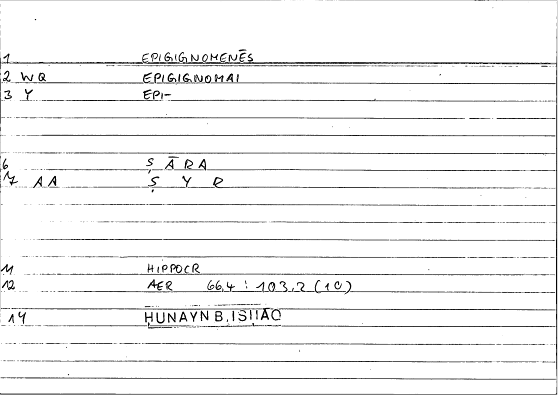 1 EPIGIGNOMENĒS
2 WQ EPIGIGNOMAI
3 Y EPI-
6 ṢĀRA
7 AA Ṣ Y R
11 HIPPOCR
12 AER 66,4 : 103,2 (10)
14 HUNAYN B. ISḤĀQ